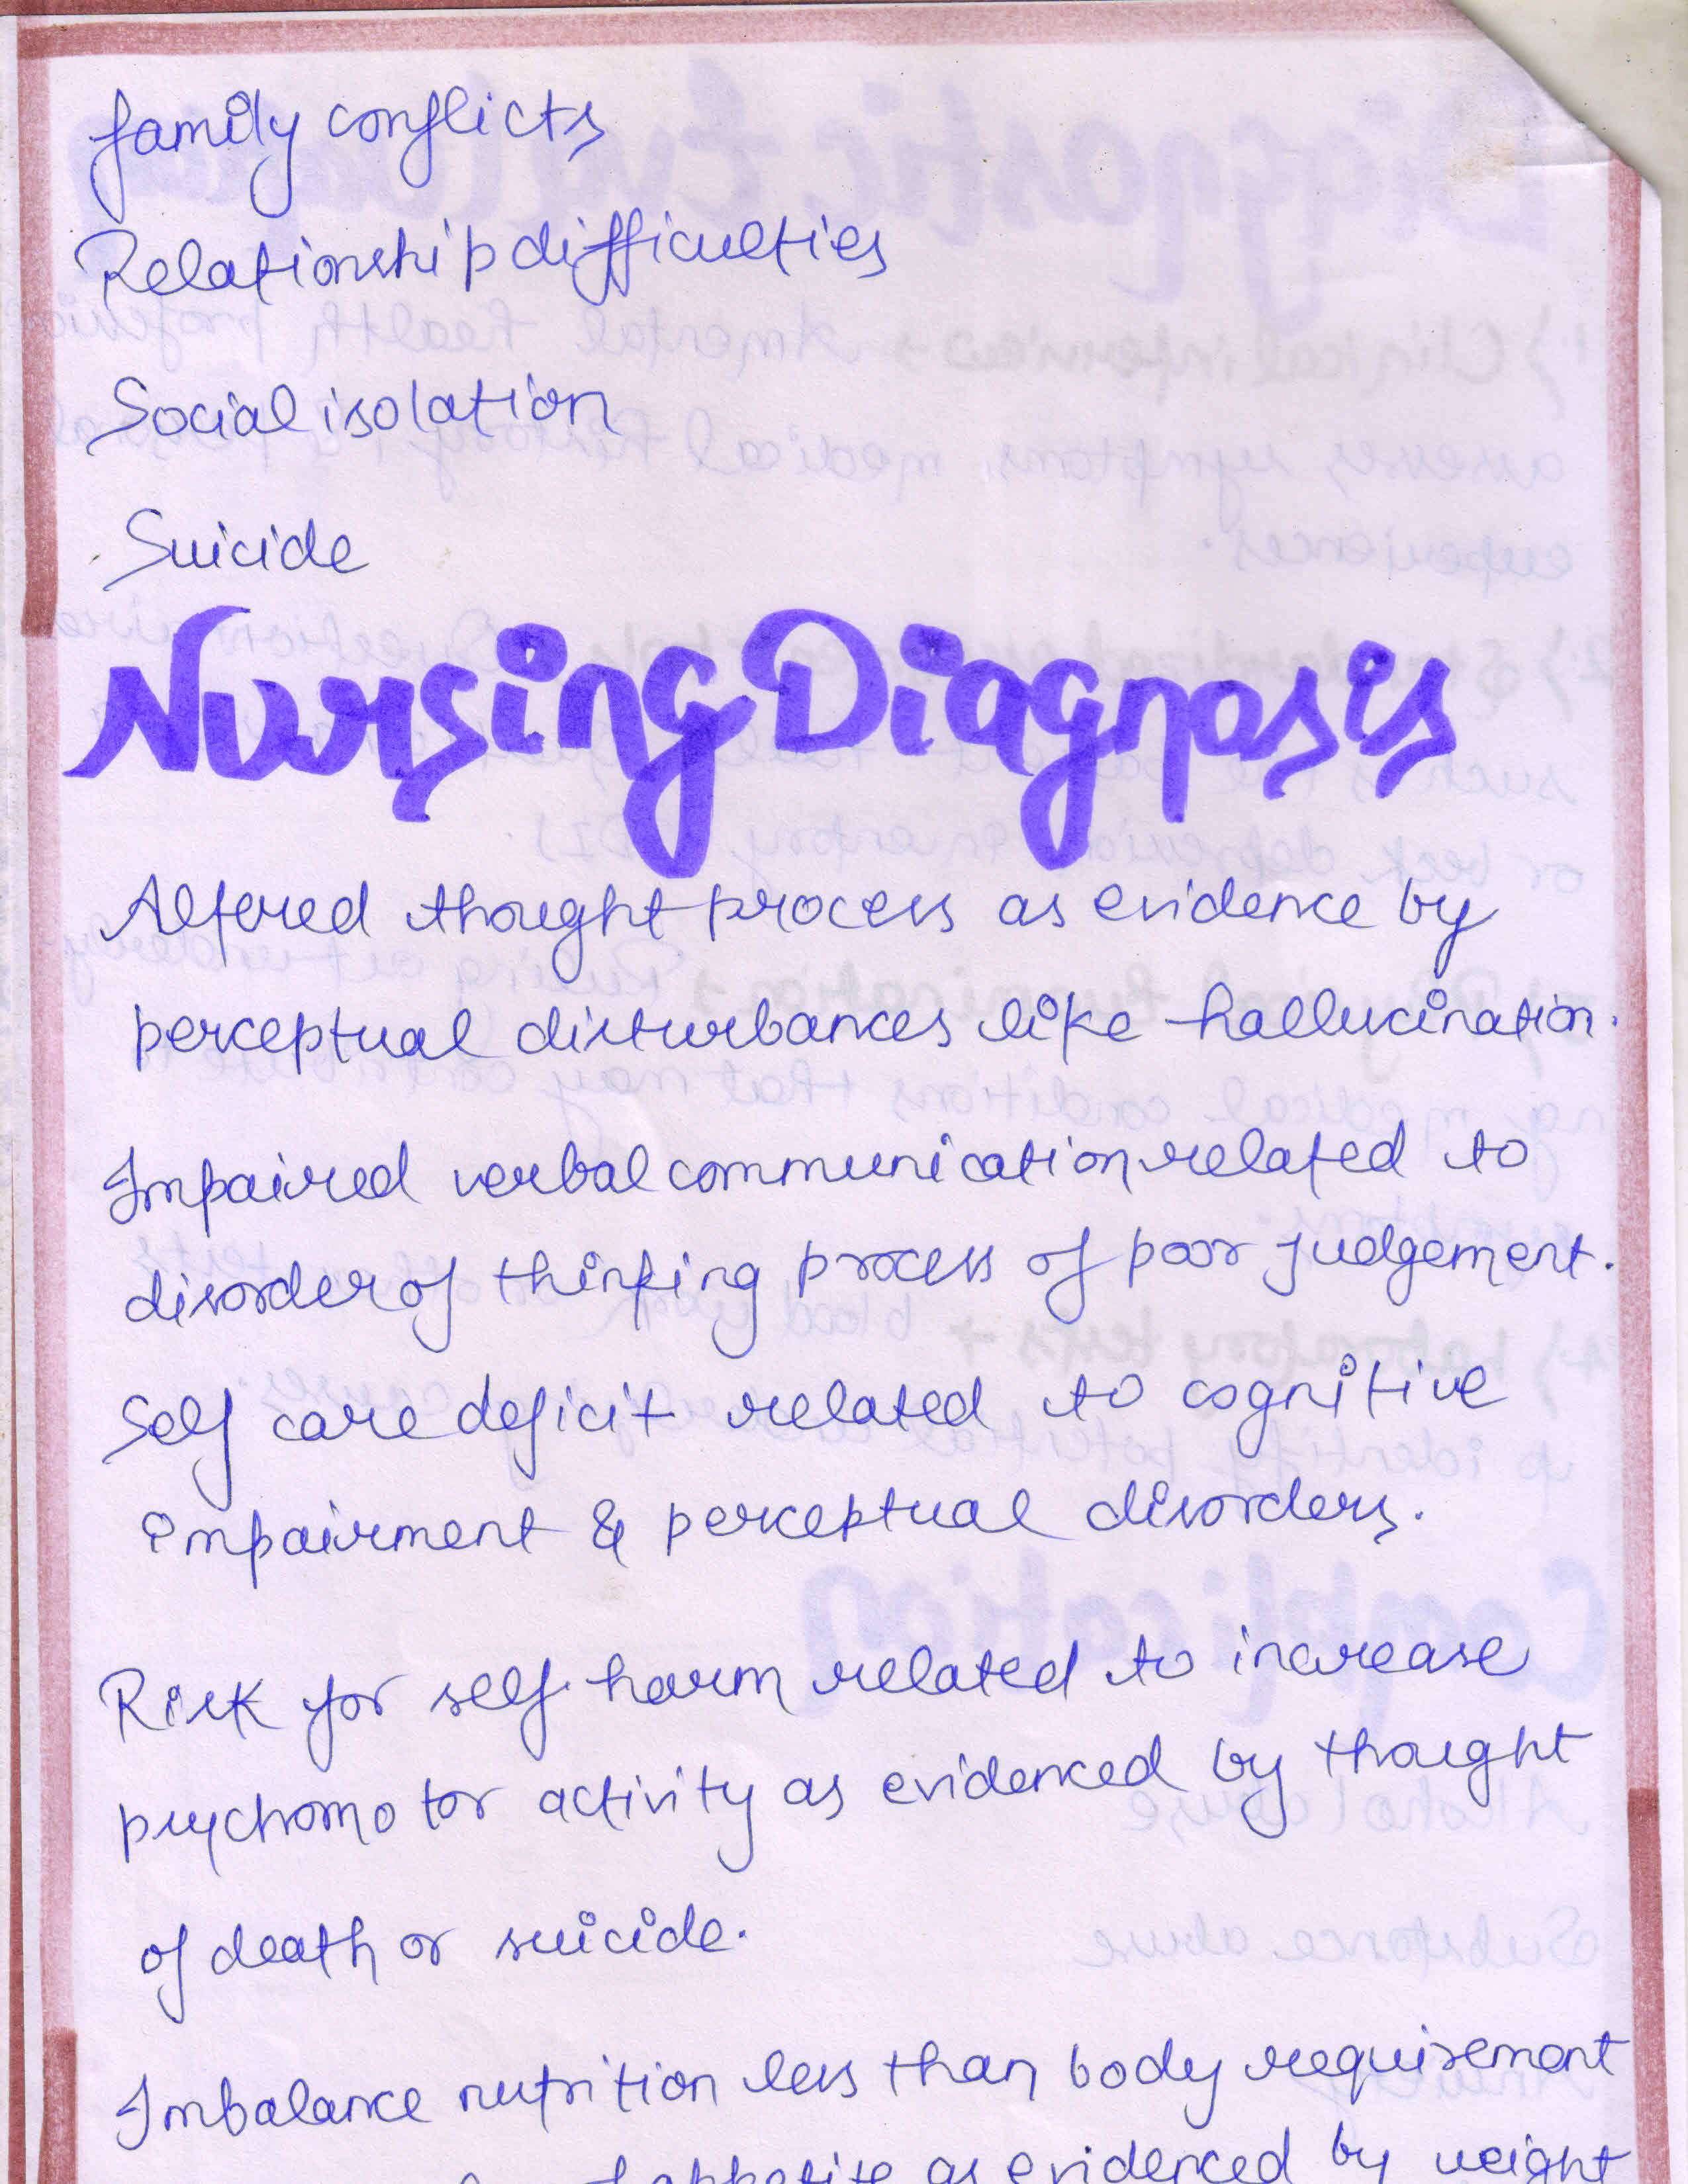 family conflicts
Relationship difficulties
Social isolation
Suicide
Nursing Diagnosis
Altered thought process as evidence by
perceptual disturbances like hallucination.
Impaired verbal communication related to
disorder of thinking process of poor judgement.
Self care deficit related to cognitive
impairment & perceptual disorders.
Risk for self harm related to increase
psychomotor activity as evidenced by thought
of death or suicide.
Imbalance nutrition less than body requirement
appetite as evidenced by weight